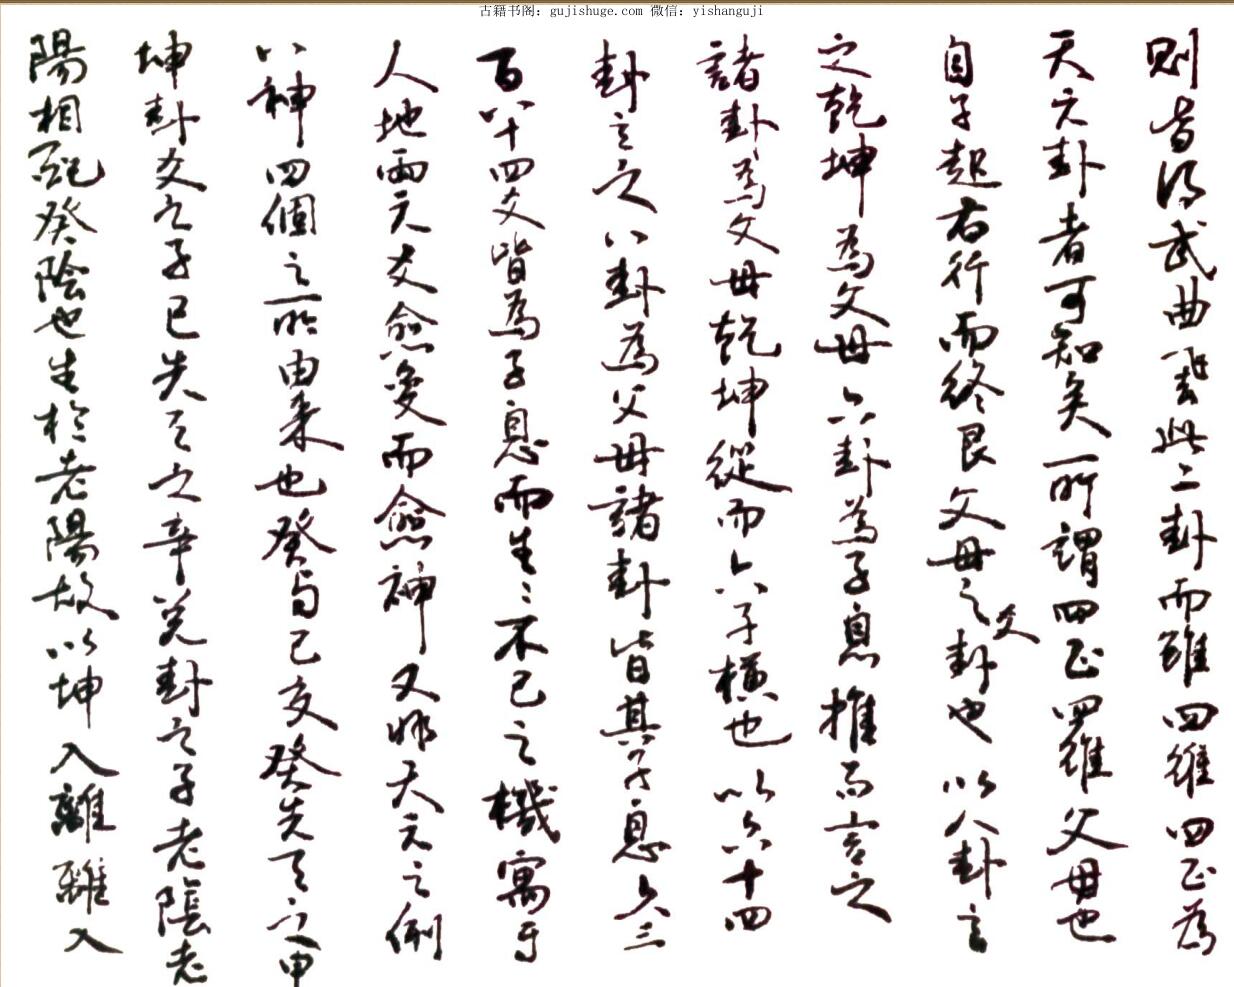 古籍书阁：gujishuge.com 微信：yishanguji
則皆得武曲飛此二卦而雖四維四正為
天元卦者可知矣所謂四正四維父母也
自子起右行而終艮父母之卦爻也以八卦言
之乾坤為父母六卦為子息推而言之
諸卦為父母乾坤從而六子橫也以六十四
卦言之八卦為父母諸卦皆其子息六三
百八十四爻皆為子息而生生不已之機寓于
人地兩元爻愈變而愈神又非天元之例
八神四個之一所由來也癸與巳交癸先天之申
坤卦爻之子巳先天之辛兌卦之子老陰老
陽相配癸陰也生於老陽故以坤入離離入